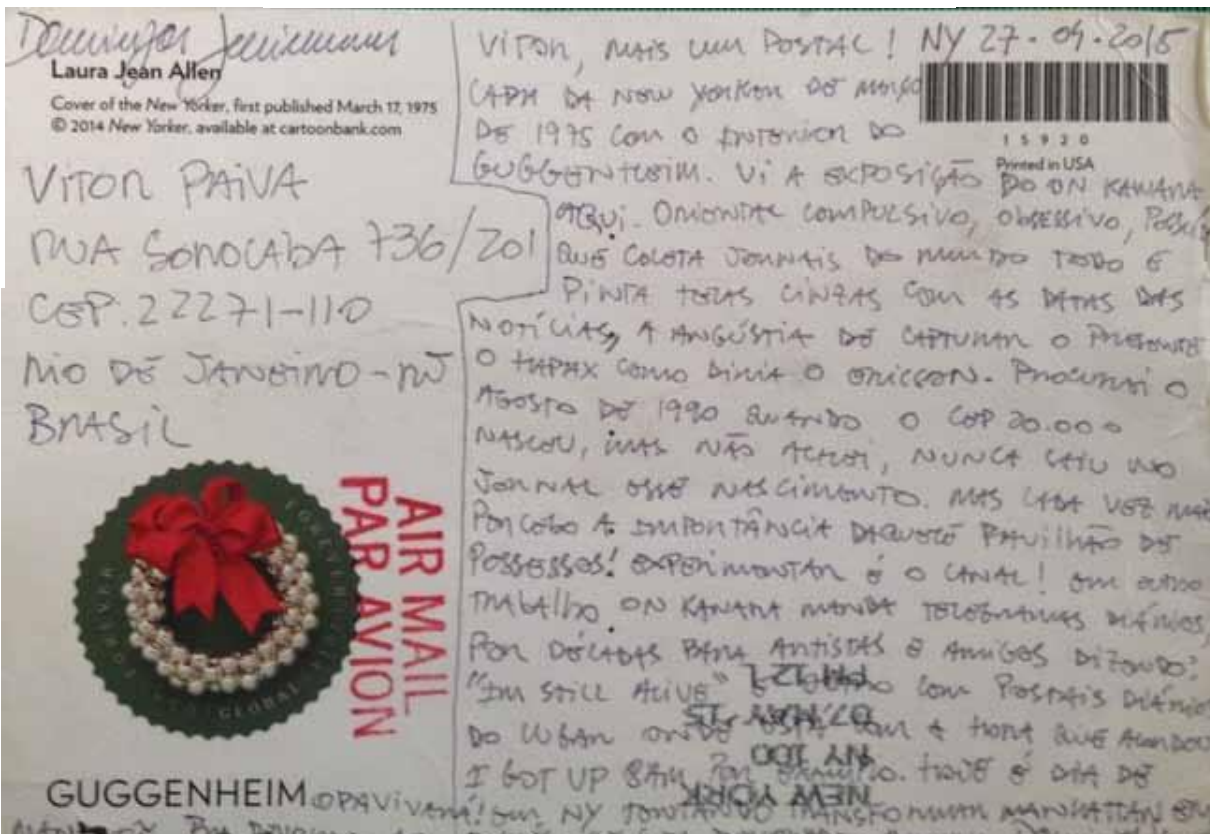 Domingos
Laura Jean Allen
Cover of the New Yorker, first published March 17, 1975
© 2014 New Yorker, available at cartoonbank.com
VITOR PAIVA
RUA SOROCABA 736/201
CEP. 22271-110
RIO DE JANEIRO - RJ
BRASIL
FOREVER
GLOBAL
AIR MAIL
PAR AVION
GUGGENHEIM
VITOR, MAIS UM POSTAL! NY 27-04-2015
CAPA DA NEW YORKER DE MARÇO
DE 1975 COM O INTERIOR DO
15920
Printed in USA
GUGGENHEIM. VI A EXPOSIÇÃO DO ON KAWARA
AQUI. ORIENTAL COMPULSIVO, OBSESSIVO,
QUE COLETA JORNAIS DO MUNDO TODO E
PINTA TELAS CINZAS COM AS DATAS DAS
NOTÍCIAS, A ANGÚSTIA DE CAPTURAR O PRESENTE
O HAPAX COMO DIRIA O ERICSON. PROCUREI O
AGOSTO DE 1990 QUANDO O CEP 20.000
NASCEU, MAS NÃO ACHEI, NUNCA SAIU NO
JORNAL ESSE NASCIMENTO. MAS CADA VEZ MAIS
PERCEBO A IMPORTÂNCIA DAQUELE PAVILHÃO DE
POSSESSOS! EXPERIMENTAR É O CANAL! EM OUTRO
TRABALHO ON KAWARA MANDA TELEGRAMAS DIÁRIOS,
POR DÉCADAS PARA ARTISTAS E AMIGOS DIZENDO:
"IM STILL ALIVE" E COM POSTAIS DIÁRIOS
DO LUGAR ONDE ESTÁ COM A HORA QUE ACORDOU
I GOT UP 8AM POR EXEMPLO. HOJE É DIA DE
OPAVIVARÁ! EM NY TENTANDO TRANSFORMAR MANHATTAN EM
NEW YORK
NY 100
07 MAY 15
PM 12 L